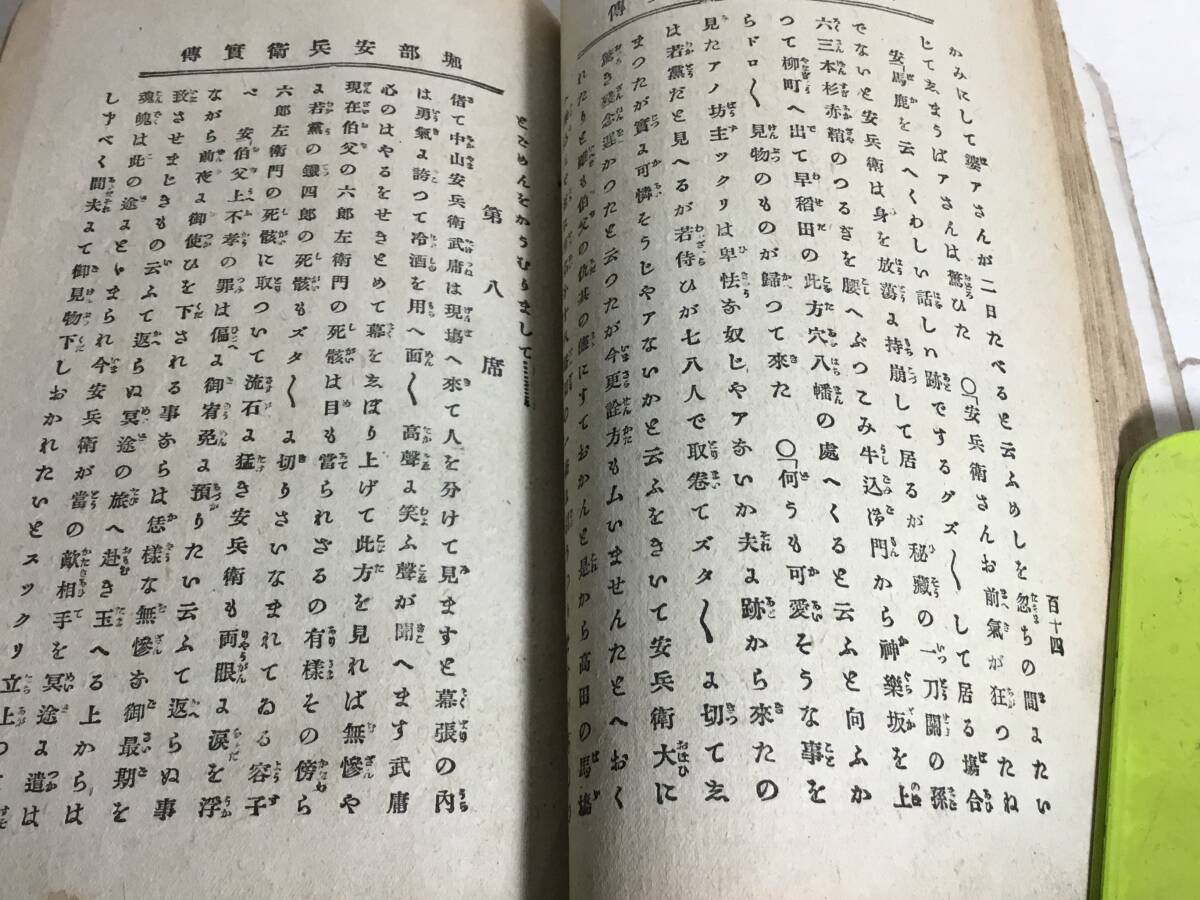 百十四
かみにして婆アさんが二日たべると云ふめしを忽ちの間よたい
じてゑまうばアさんは驚ひた　○「安兵衛さんお前氣が狂つたね
安「馬鹿を云へくわしい話しハ跡でするグズ〳〵して居る塲合
でないと安兵衛は身を放蕩よ持崩して居るが秘藏の一刀關の孫
六三本杉赤鞘のつるぎを腰へぶつこみ牛込御門から神樂坂を上
つて柳町へ出て早稲田の此方穴八幡の處へくると云ふと向ふか
らドロ〳〵見物のものが歸つて來た　○「何うも可愛そうな事を
見たアノ坊主ツクリは卑怯な奴じやアないか夫よ跡から來たの
は若黨だと見へるが若侍ひが七八人で取卷てズタ〳〵よ切てゑ
まつたが實よ可憐そうじやアないかと云ふをきいて安兵衛大に
驚き殘念遅かつたと云つたが今更詮方も厶いませんたとへおく
れたりと雖も伯父の仇其の儘にすておかんと是から高田の馬塲
堀部安兵衛實傳
とめんをかうむりまして…………
第八席
偖て中山安兵衛武庸は現塲へ來て人を分けて見ますと幕張の內
は勇氣よ誇つて冷酒を用へ面〳〵高聲よ笑ふ聲が聞へます武庸
心のはやるをせきとめて幕をゑぼり上げて此方を見れば無慘や
現在伯父の六郎左衛門の死骸は目も當られざるの有樣その傍ら
よ若黨の鐵四郎の死骸もズタ〳〵よ切りさいなまれてゐる容子
六郎左衛門の死骸に取ついて流石よ猛き安兵衛も両眼よ淚を浮
べ　安「伯父上不孝の罪は偏よ御宥免よ預りたい云ふて返らぬ事
ながら前夜よ御使ひを下される事ならは恁様な無慘な御最期を
致させまじきもの云ふて返らぬ冥途の旅へ赴き玉へる上からは
魂魄は此の途よとゞまられ今安兵衛が當の敵相手を冥途よ遣は
しすべく間夫まて御見物下しおかれたいとスツクリ立上つ